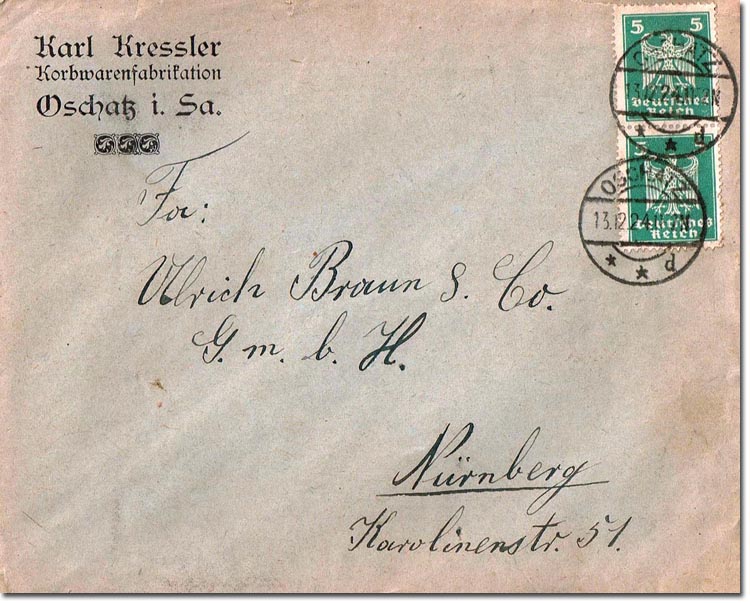 Karl Kressler
Korbwarenfabrikation
Oschatz i. Sa.
5 5
Deutsches
Reich
OSCHATZ
13.12.24
d
5
Deutsches
Reich
OSCHATZ
13.12.24
d
Fa:
Ulrich Braun & Co.
G. m. b. H.
Nürnberg
Karolinenstr. 51.